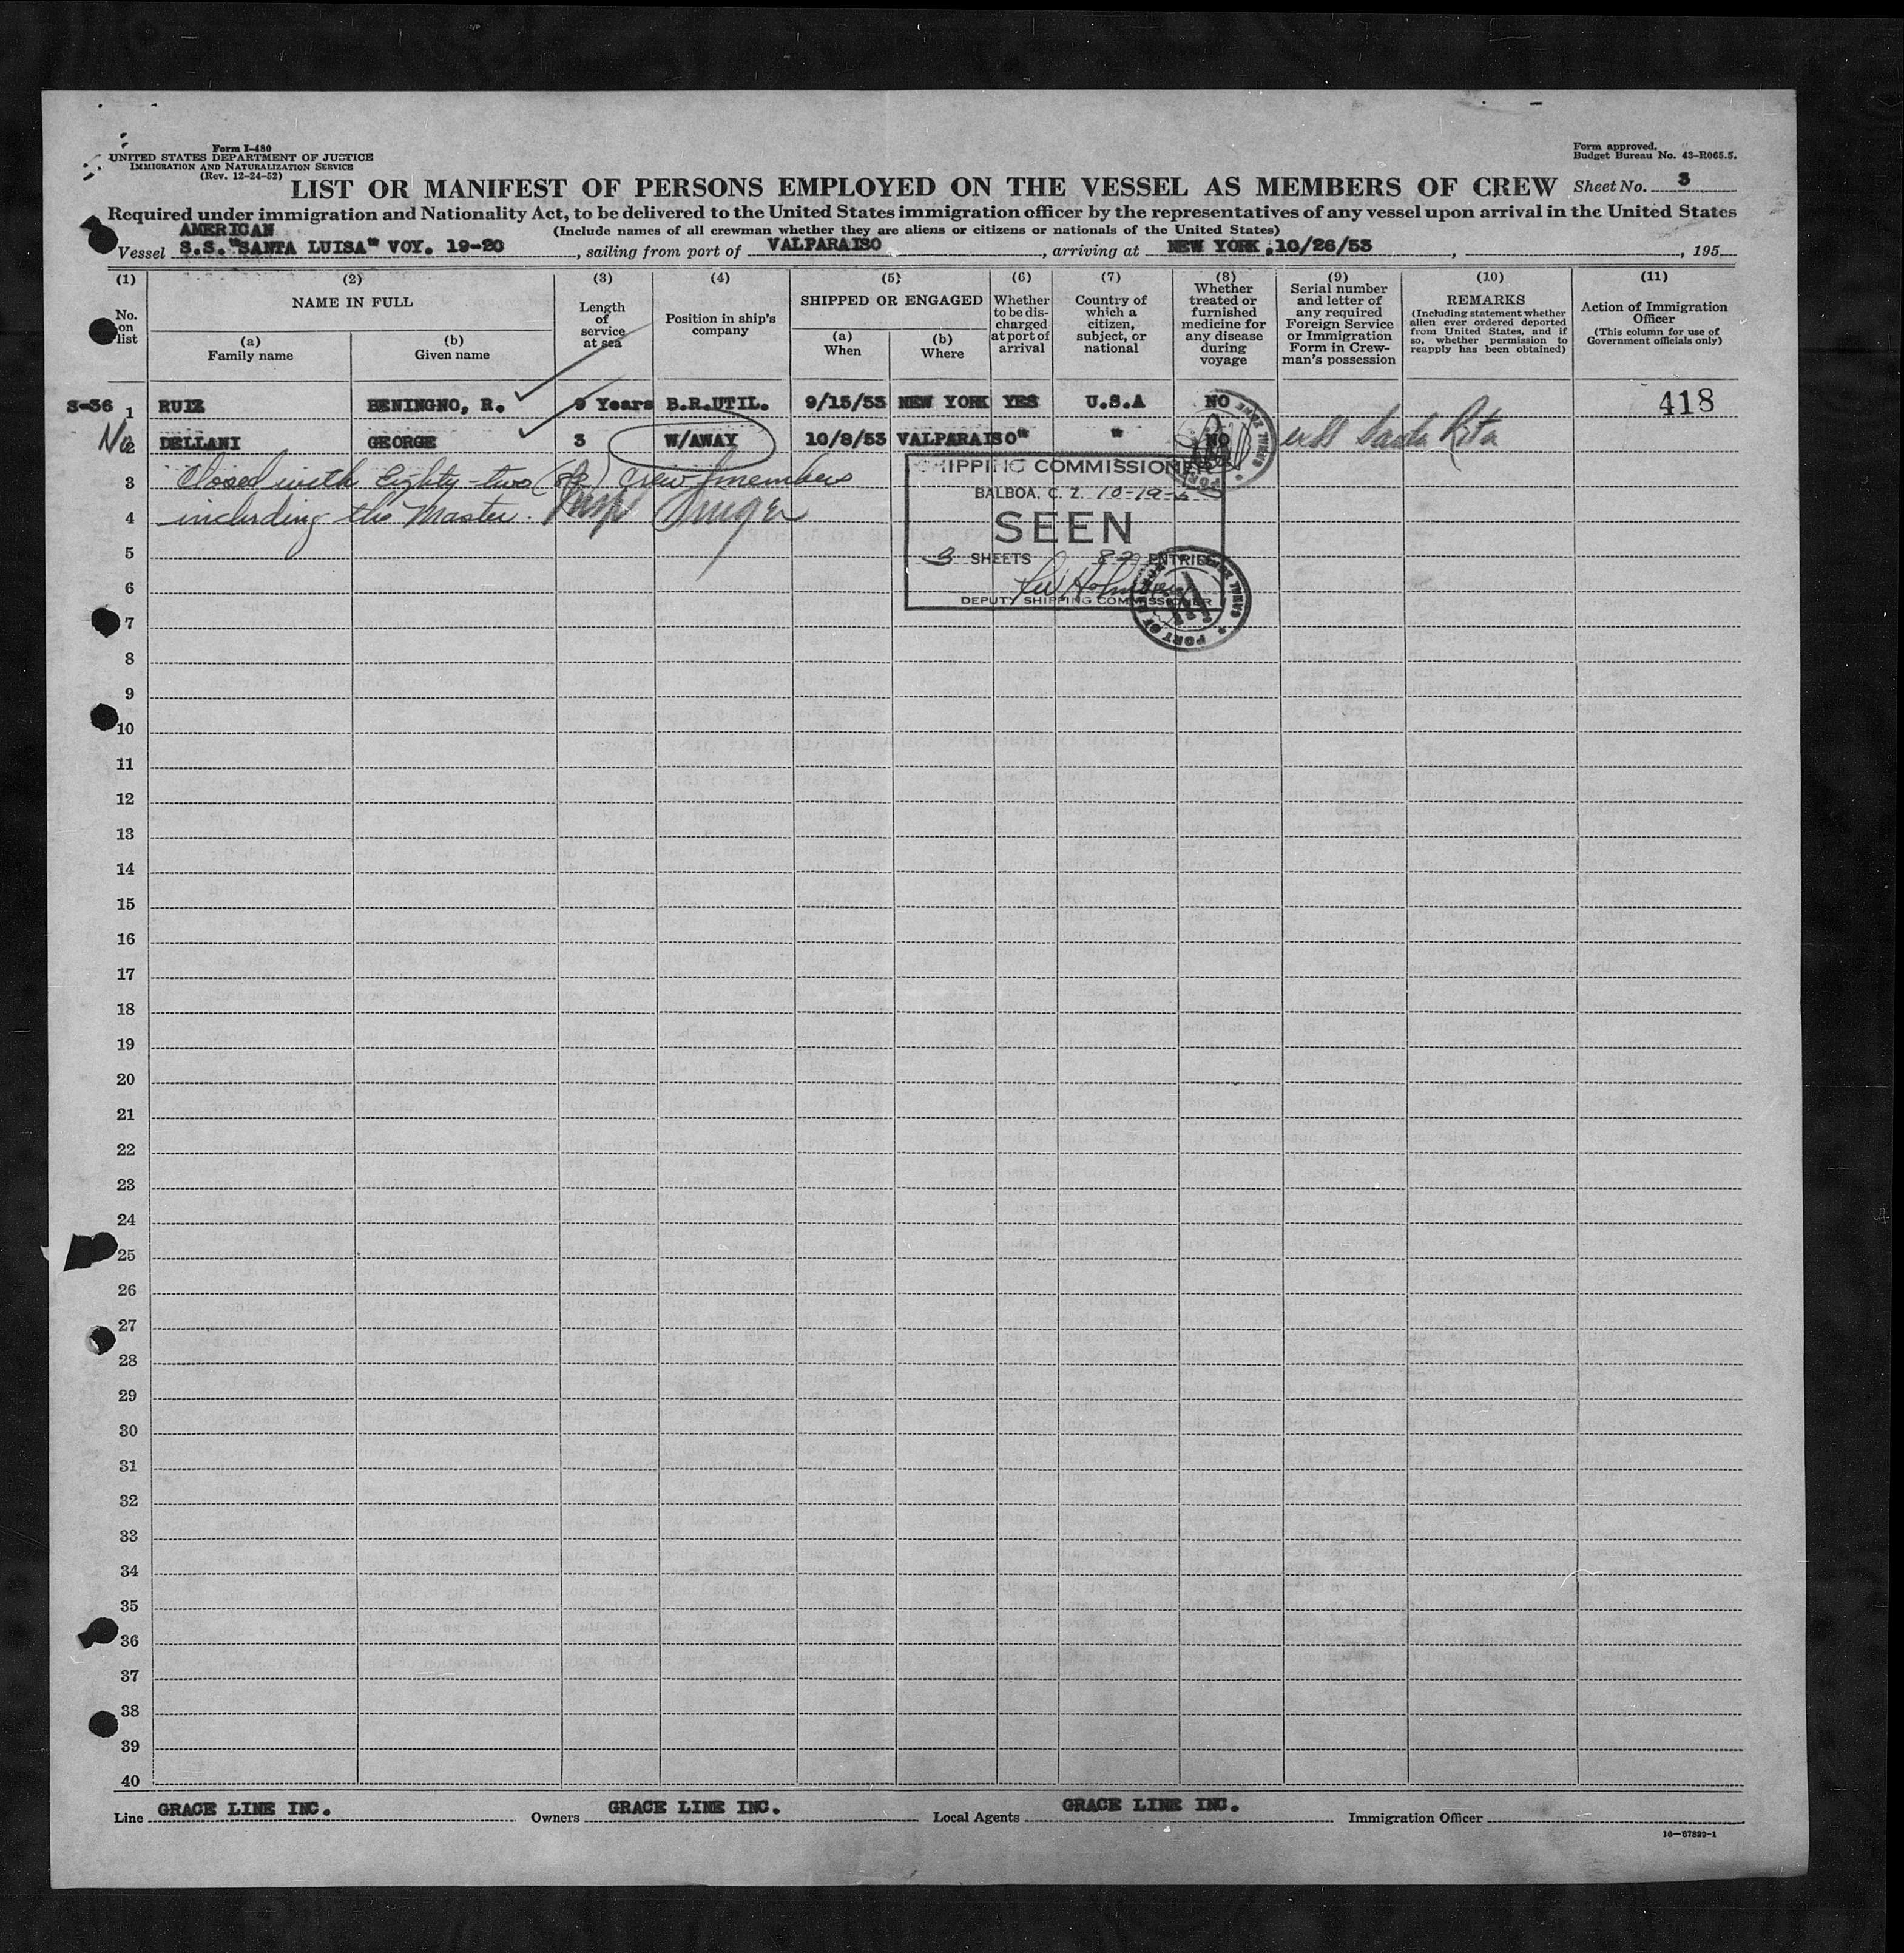 Form I-480
UNITED STATES DEPARTMENT OF JUSTICE
IMMIGRATION AND NATURALIZATION SERVICE
(Rev. 12-24-52)
Form approved.
Budget Bureau No. 43-R065.5.
LIST OR MANIFEST OF PERSONS EMPLOYED ON THE VESSEL AS MEMBERS OF CREW Sheet No. 3
Required under immigration and Nationality Act, to be delivered to the United States immigration officer by the representatives of any vessel upon arrival in the United States
AMERICAN (Include names of all crewman whether they are aliens or citizens or nationals of the United States)
Vessel S.S. "SANTA LUISA" VOY. 19-20, sailing from port of VALPARAISO, arriving at NEW YORK, 10/26/53, , 195
(1) No. on list
(2) NAME IN FULL
(a) Family name
(b) Given name
(3) Length of service at sea
(4) Position in ship's company
(5) SHIPPED OR ENGAGED
(a) When
(b) Where
(6) Whether to be discharged at port of arrival
(7) Country of which a citizen, subject, or national
(8) Whether treated or furnished medicine for any disease during voyage
(9) Serial number and letter of any required Foreign Service or Immigration Form in Crewman's possession
(10) REMARKS (Including statement whether alien ever ordered deported from United States, and if so, whether permission to reapply has been obtained)
(11) Action of Immigration Officer (This column for use of Government officials only)
S-36 1 RUIZ BENINGNO, R. 9 Years B.R.UTIL. 9/15/53 NEW YORK YES U.S.A NO 418
No 2 DELLANI GEORGE 3 W/AWAY 10/8/53 VALPARAISO " " NO Santa Rita
3 Closed with Eighty-two (82) crew members
4 including the Master. Insp
SHIPPING COMMISSIONER
BALBOA, C. Z. 10-19-5
SEEN
3 SHEETS 82 ENTRIES
DEPUTY SHIPPING COMMISSIONER
PORT OF
CANAL ZONE
5
6
7
8
9
10
11
12
13
14
15
16
17
18
19
20
21
22
23
24
25
26
27
28
29
30
31
32
33
34
35
36
37
38
39
40
Line GRACE LINE INC. Owners GRACE LINE INC. Local Agents GRACE LINE INC. Immigration Officer
16-67829-1